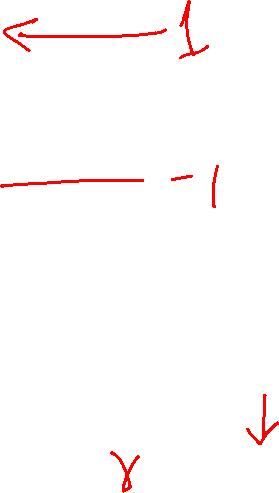 ← 1
— -1
↓
γ